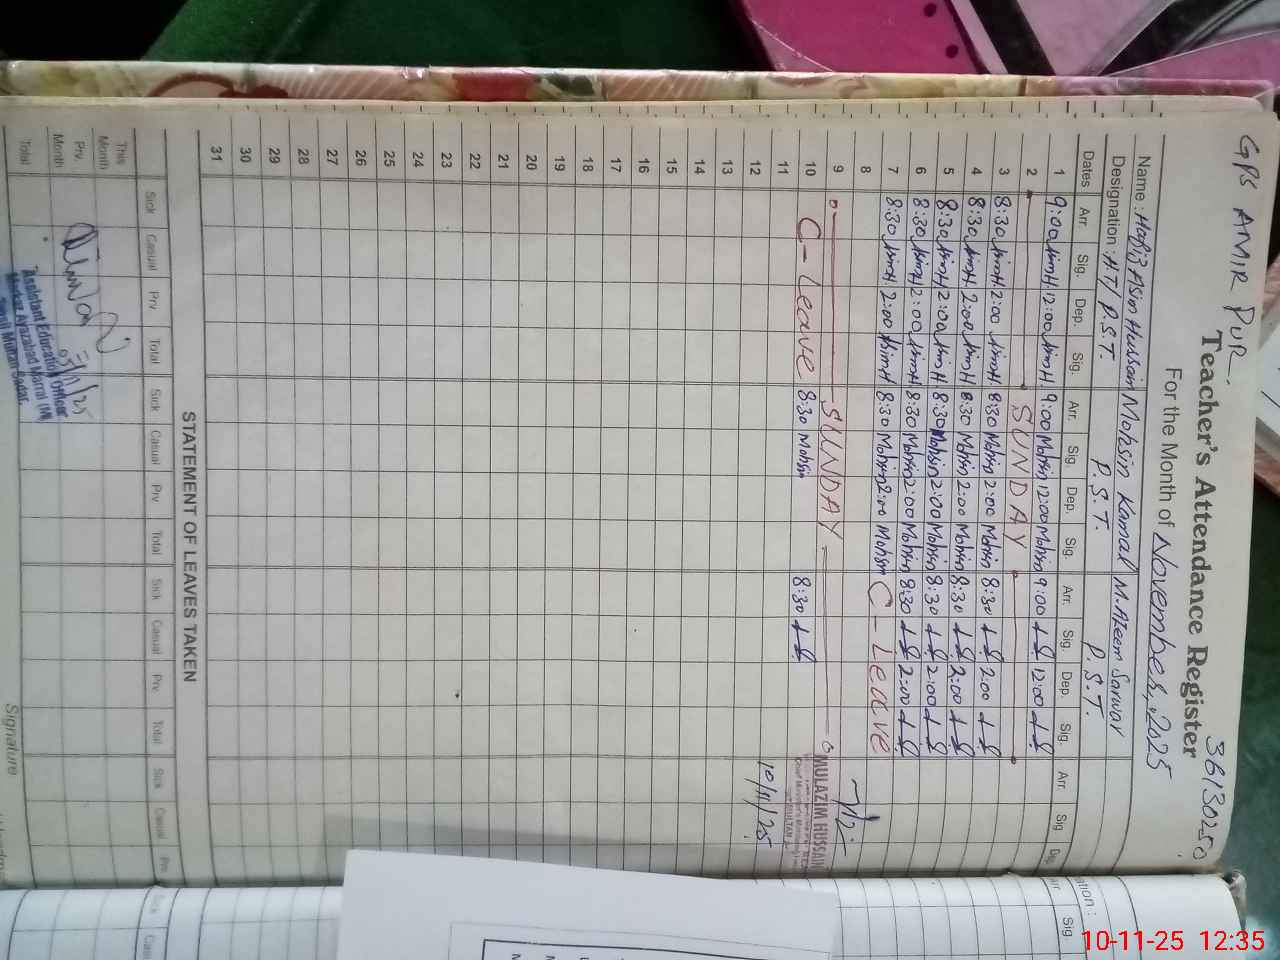 GPS AMIR PUR. 36130250
Teacher's Attendance Register
For the Month of November, 2025
Name : Hafiz Asim Hussain Mohsin Kamal M. Azeem Sarwar
Designation : H.T/ P.S.T. P.S.T. P.S.T.
Dates Arr. Sig. Dep. Sig. Arr. Sig. Dep. Sig. Arr. Sig. Dep. Sig. Arr. Sig. Dep.
1 9:00 AsimH. 12:00 AsimH. 9:00 Mohsin 12:00 Mohsin 9:00 12:00
2 SUNDAY
3 8:30 AsimH. 2:00 AsimH 8:30 Mohsin 2:00 Mohsin 8:30 2:00
4 8:30 AsimH. 2:00 AsimH 8:30 Mohsin 2:00 Mohsin 8:30 2:00
5 8:30 AsimH. 2:00 AsimH 8:30 Mohsin 2:00 Mohsin 8:30 2:00
6 8:30 AsimH. 2:00 AsimH 8:30 Mohsin 2:00 Mohsin 8:30 2:00
7 8:30 AsimH. 2:00 AsimH 8:30 Mohsin 2:00 Mohsin C - Leave
8
9 SUNDAY
10 C - Leave 8:30 Mohsin 8:30
MULAZIM HUSSAIN
MULTAN
10/11/25
11
12
13
14
15
16
17
18
19
20
21
22
23
24
25
26
27
28
29
30
31
STATEMENT OF LEAVES TAKEN
Sick Casual Prv Total Sick Casual Prv Total Sick Casual Prv Total Sick Casual Prv
This Month
Prv. Month
Total
05/11/25
Assistant Education Officer
Markaz Ayazabad Marral (M)
Tehsil Multan Sadar.
Signature
Sig.
10-11-25 12:35